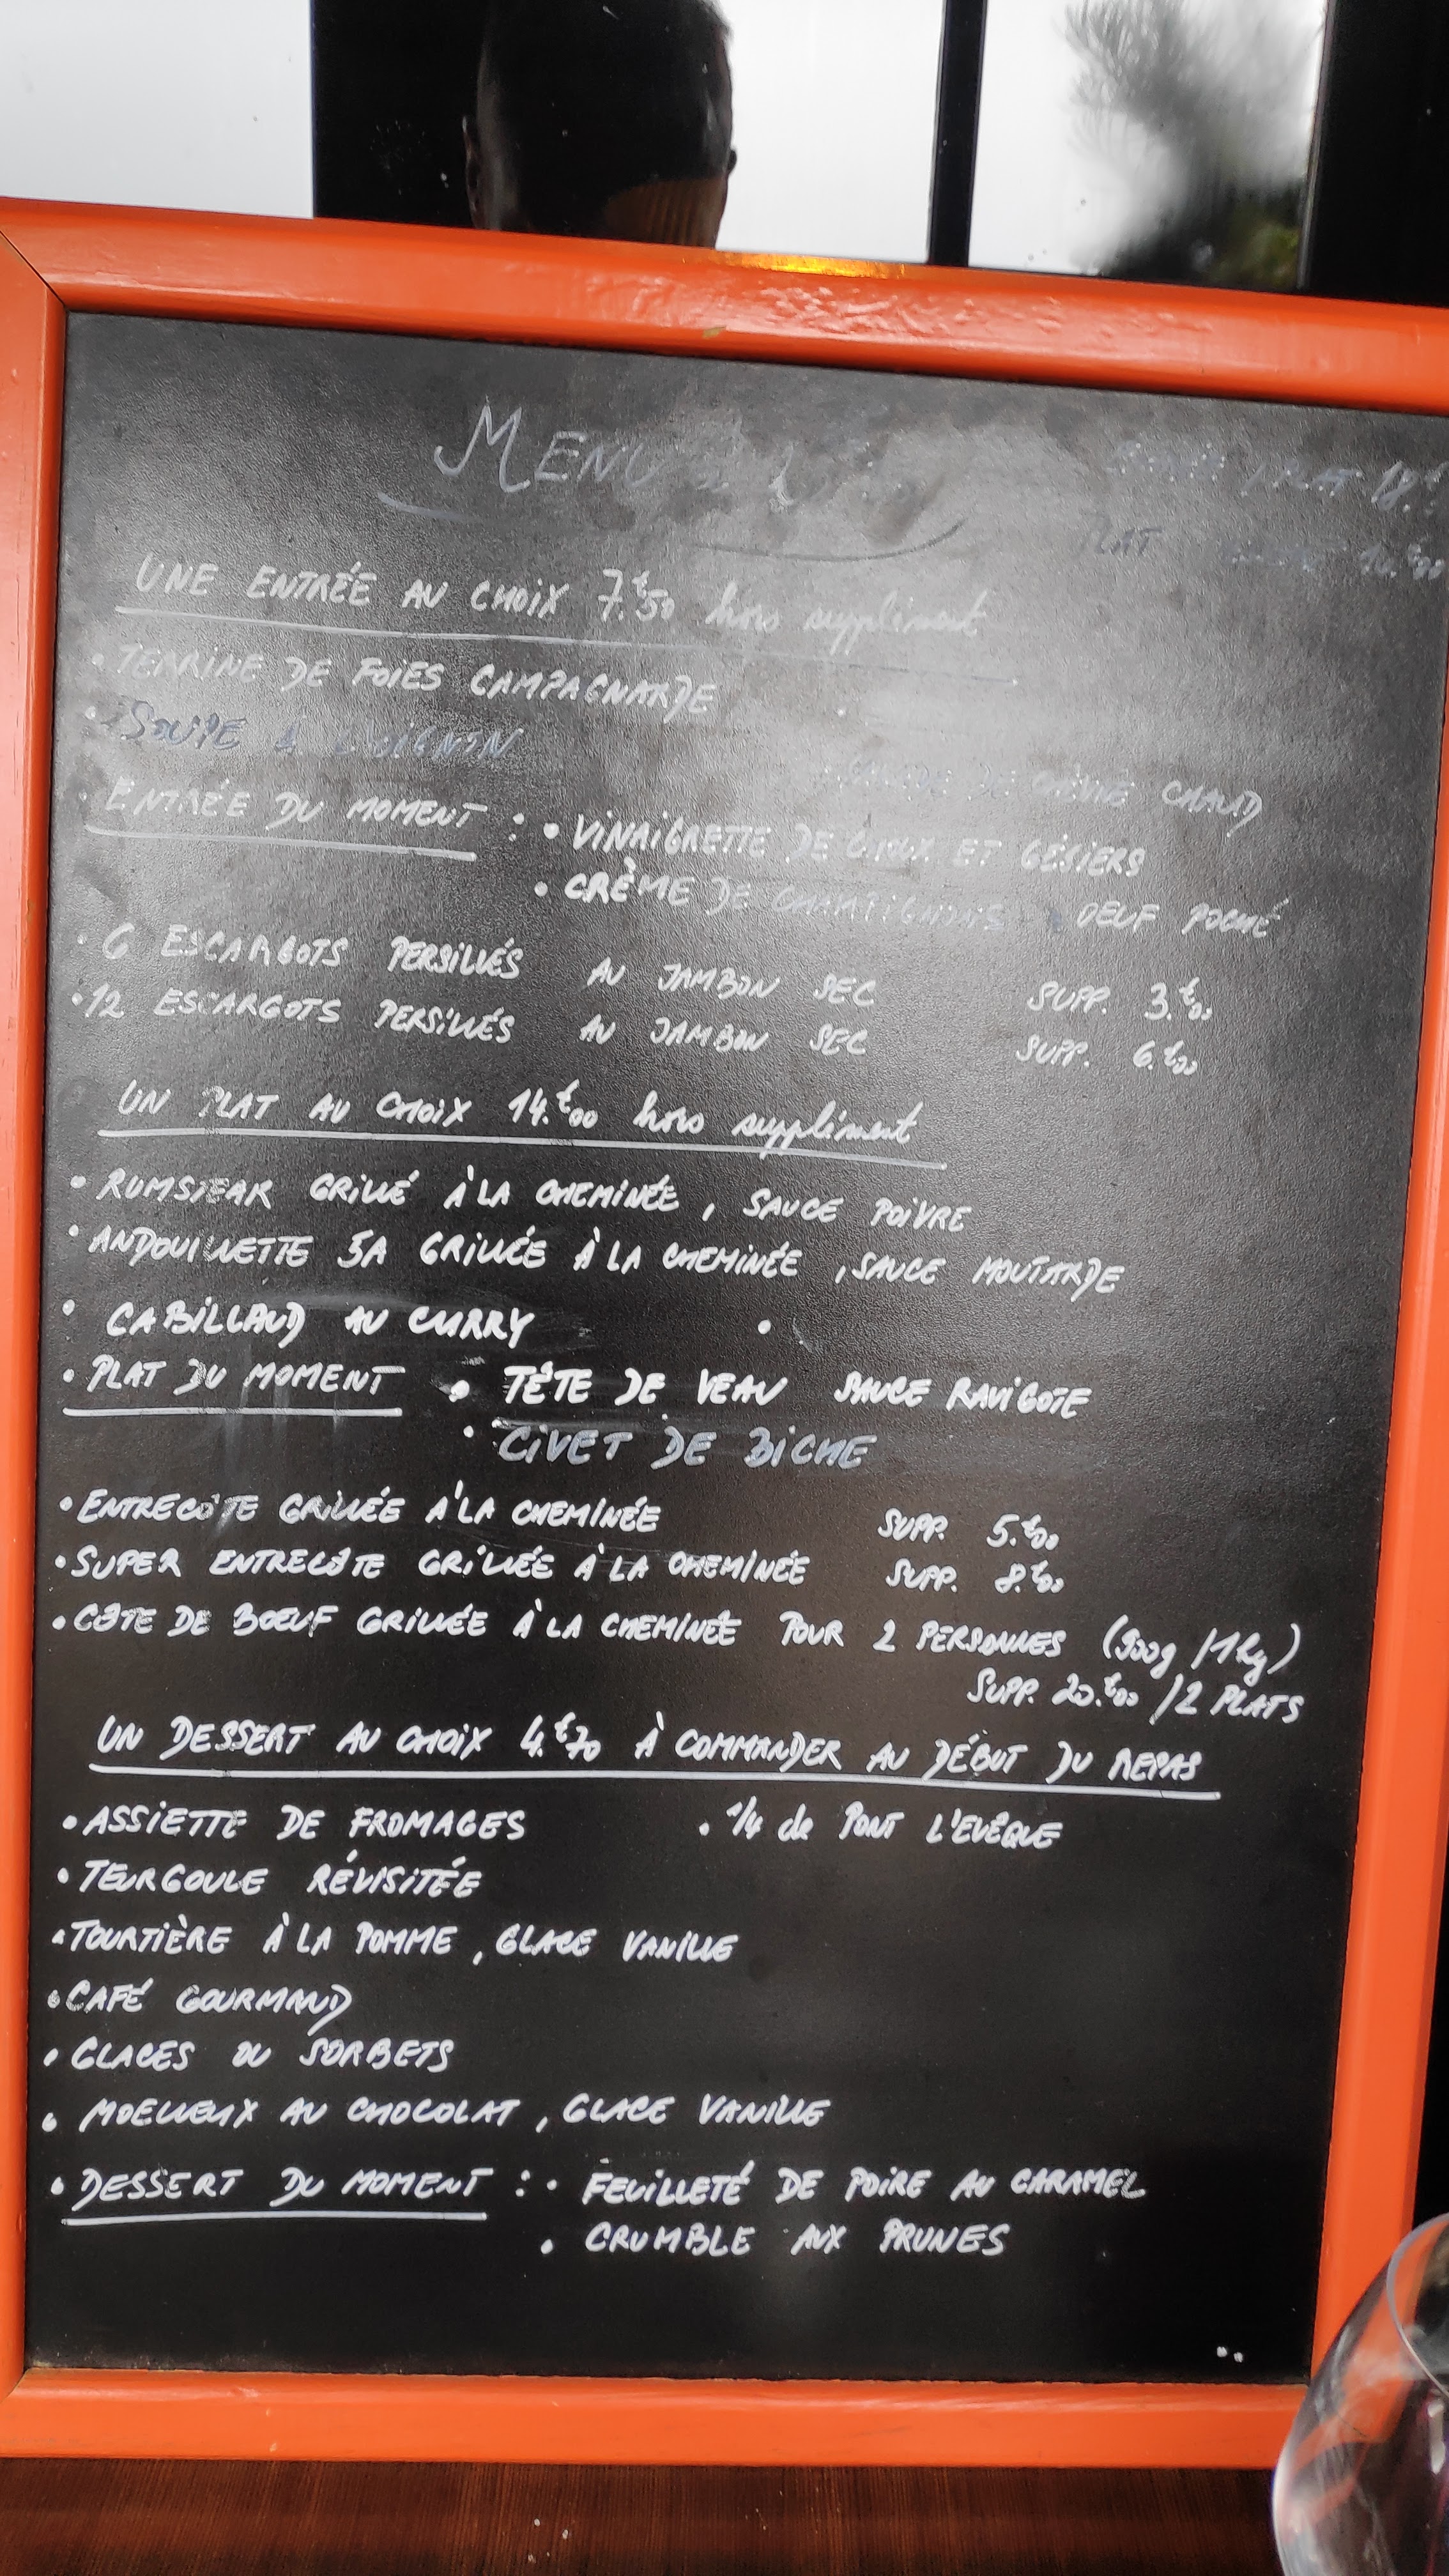 MENU
PLAT 18.€
PLAT
UNE ENTRÉE AU CHOIX 7.€50 hors supplément
• TERRINE DE FOIES CAMPAGNARDE
• SOUPE À L'OIGNON
DE CHÈVRE CHAUD
• ENTRÉE DU MOMENT : • VINAIGRETTE DE CHOUX ET GÉSIERS
• CRÈME DE CHAMPIGNONS OEUF POCHÉ
• 6 ESCARGOTS PERSILLÉS AU JAMBON SEC SUPP. 3.€00
• 12 ESCARGOTS PERSILLÉS AU JAMBON SEC SUPP. 6.€00
UN PLAT AU CHOIX 14.€00 hors supplément
• RUMSTEAK GRILLÉ À LA CHEMINÉE, SAUCE POIVRE
• ANDOUILLETTE 5A GRILLÉE À LA CHEMINÉE, SAUCE MOUTARDE
• CABILLAUD AU CURRY •
• PLAT DU MOMENT • TÊTE DE VEAU SAUCE RAVIGOTE
• CIVET DE BICHE
• ENTRECÔTE GRILLÉE À LA CHEMINÉE SUPP. 5.€00
• SUPER ENTRECÔTE GRILLÉE À LA CHEMINÉE SUPP. 8.€00
• CÔTE DE BOEUF GRILLÉE À LA CHEMINÉE POUR 2 PERSONNES (900g / 1kg)
SUPP. 20.€00 / 2 PLATS
UN DESSERT AU CHOIX 4.€70 À COMMANDER AU DÉBUT DU REPAS
• ASSIETTE DE FROMAGES • 1/4 de PONT L'EVÊQUE
• TEURGOULE RÉVISITÉE
• TOURTIÈRE À LA POMME, GLACE VANILLE
• CAFÉ GOURMAND
• GLACES OU SORBETS
• MOELLEUX AU CHOCOLAT, GLACE VANILLE
• DESSERT DU MOMENT : • FEUILLETÉ DE POIRE AU CARAMEL
• CRUMBLE AUX PRUNES